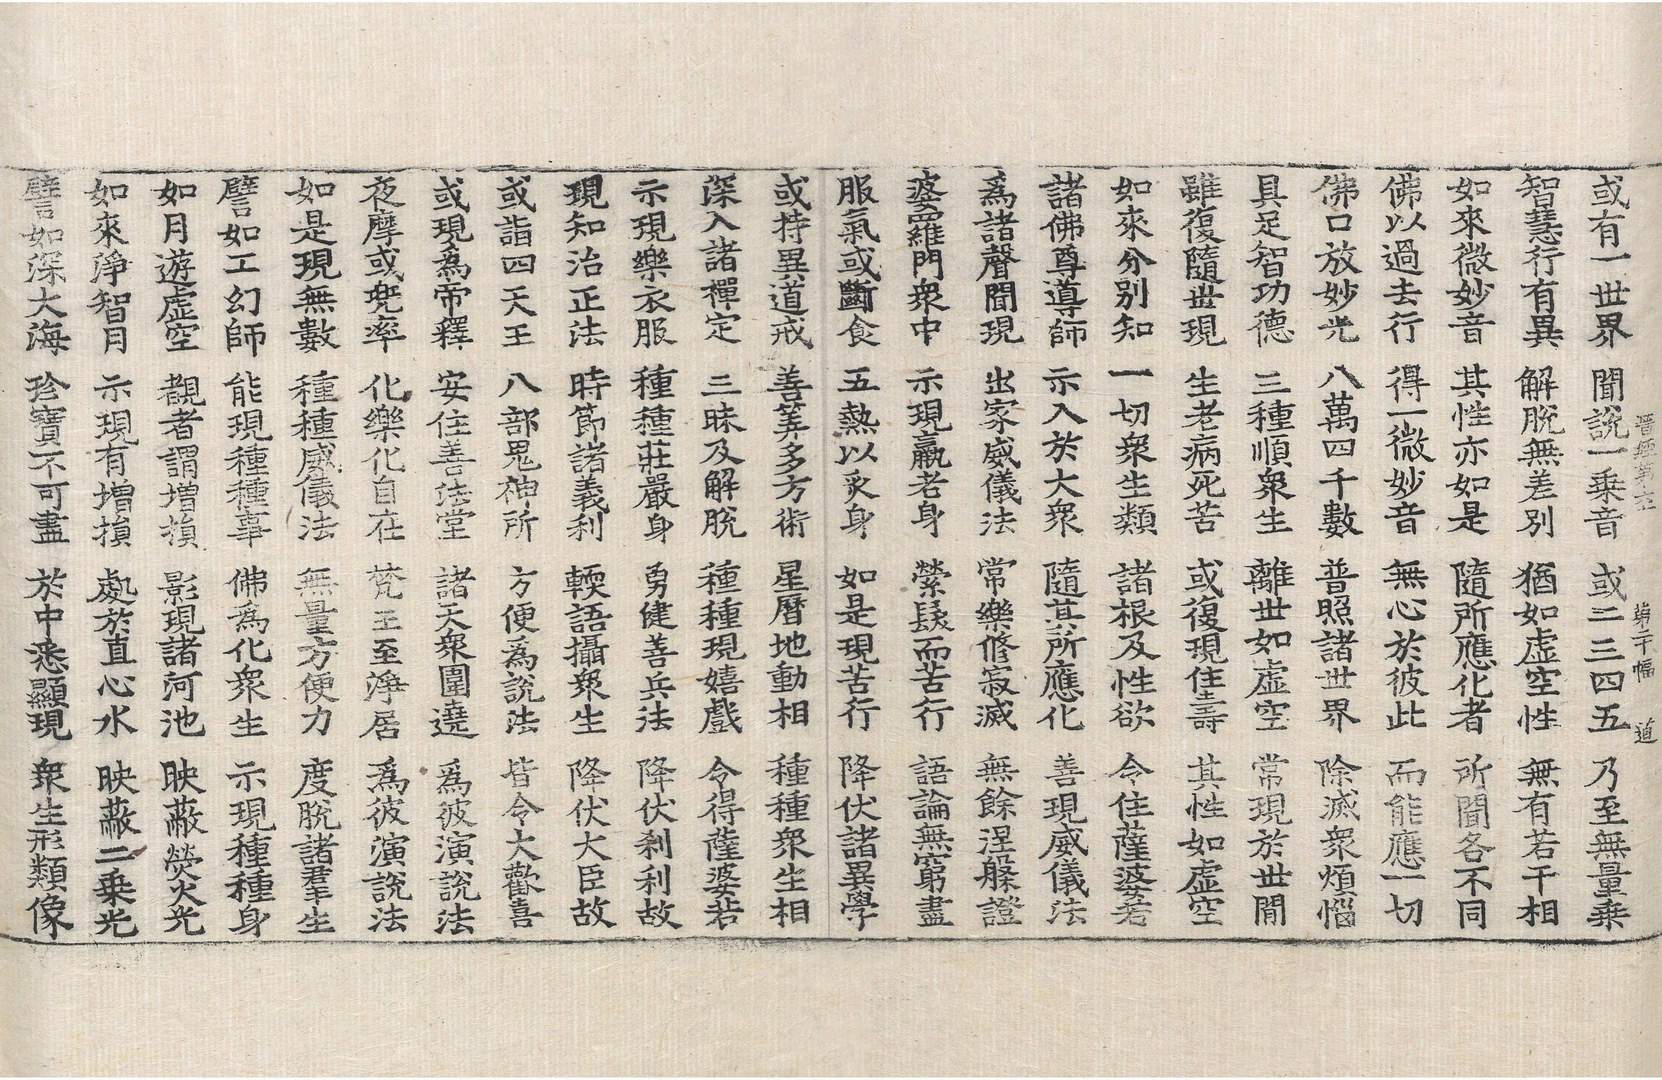 或有一世界　聞說一乘音　或二三四五　乃至無量乘
智慧行有異　解脫無差別　猶如虛空性　無有若干相
如來微妙音　其性亦如是　隨所應化者　所聞各不同
佛以過去行　得一微妙音　無心於彼此　而能應一切
佛口放妙光　八萬四千數　普照諸世界　除滅衆煩惱
具足智功德　三種順衆生　離世如虛空　常現於世間
雖復隨世現　生老病死苦　或復現住壽　其性如虛空
如來分別知　一切衆生類　諸根及性欲　令住薩婆若
諸佛尊導師　示入於大衆　隨其所應化　善現威儀法
爲諸聲聞現　出家威儀法　常樂修寂滅　無餘涅槃證
婆羅門衆中　示現羸老身　縈髮而苦行　語論無窮盡
服氣或斷食　五熱以炙身　如是現苦行　降伏諸異學
或持異道戒　善筭多方術　星曆地動相　種種衆生相
深入諸禪定　三昧及解脫　種種現嬉戲　令得薩婆若
示現樂衣服　種種莊嚴身　勇健善兵法　降伏刹利故
現知治正法　時節諸義利　輭語攝衆生　降伏大臣故
或詣四天王　八部鬼神所　方便爲說法　皆令大歡喜
或現爲帝釋　安住善法堂　諸天衆圍遶　爲彼演說法
夜摩或兜率　化樂化自在　梵王至淨居　爲彼演說法
如是現無數　種種威儀法　無量方便力　度脫諸羣生
譬如工幻師　能現種種事　佛爲化衆生　示現種種身
如月遊虛空　觀者謂增損　影現諸河池　映蔽熒火光
如來淨智月　示現有增損　處於直心水　映蔽二乘光
譬如深大海　珍寶不可盡　於中悉顯現　衆生形類像
晋經第六　第二十幅　道